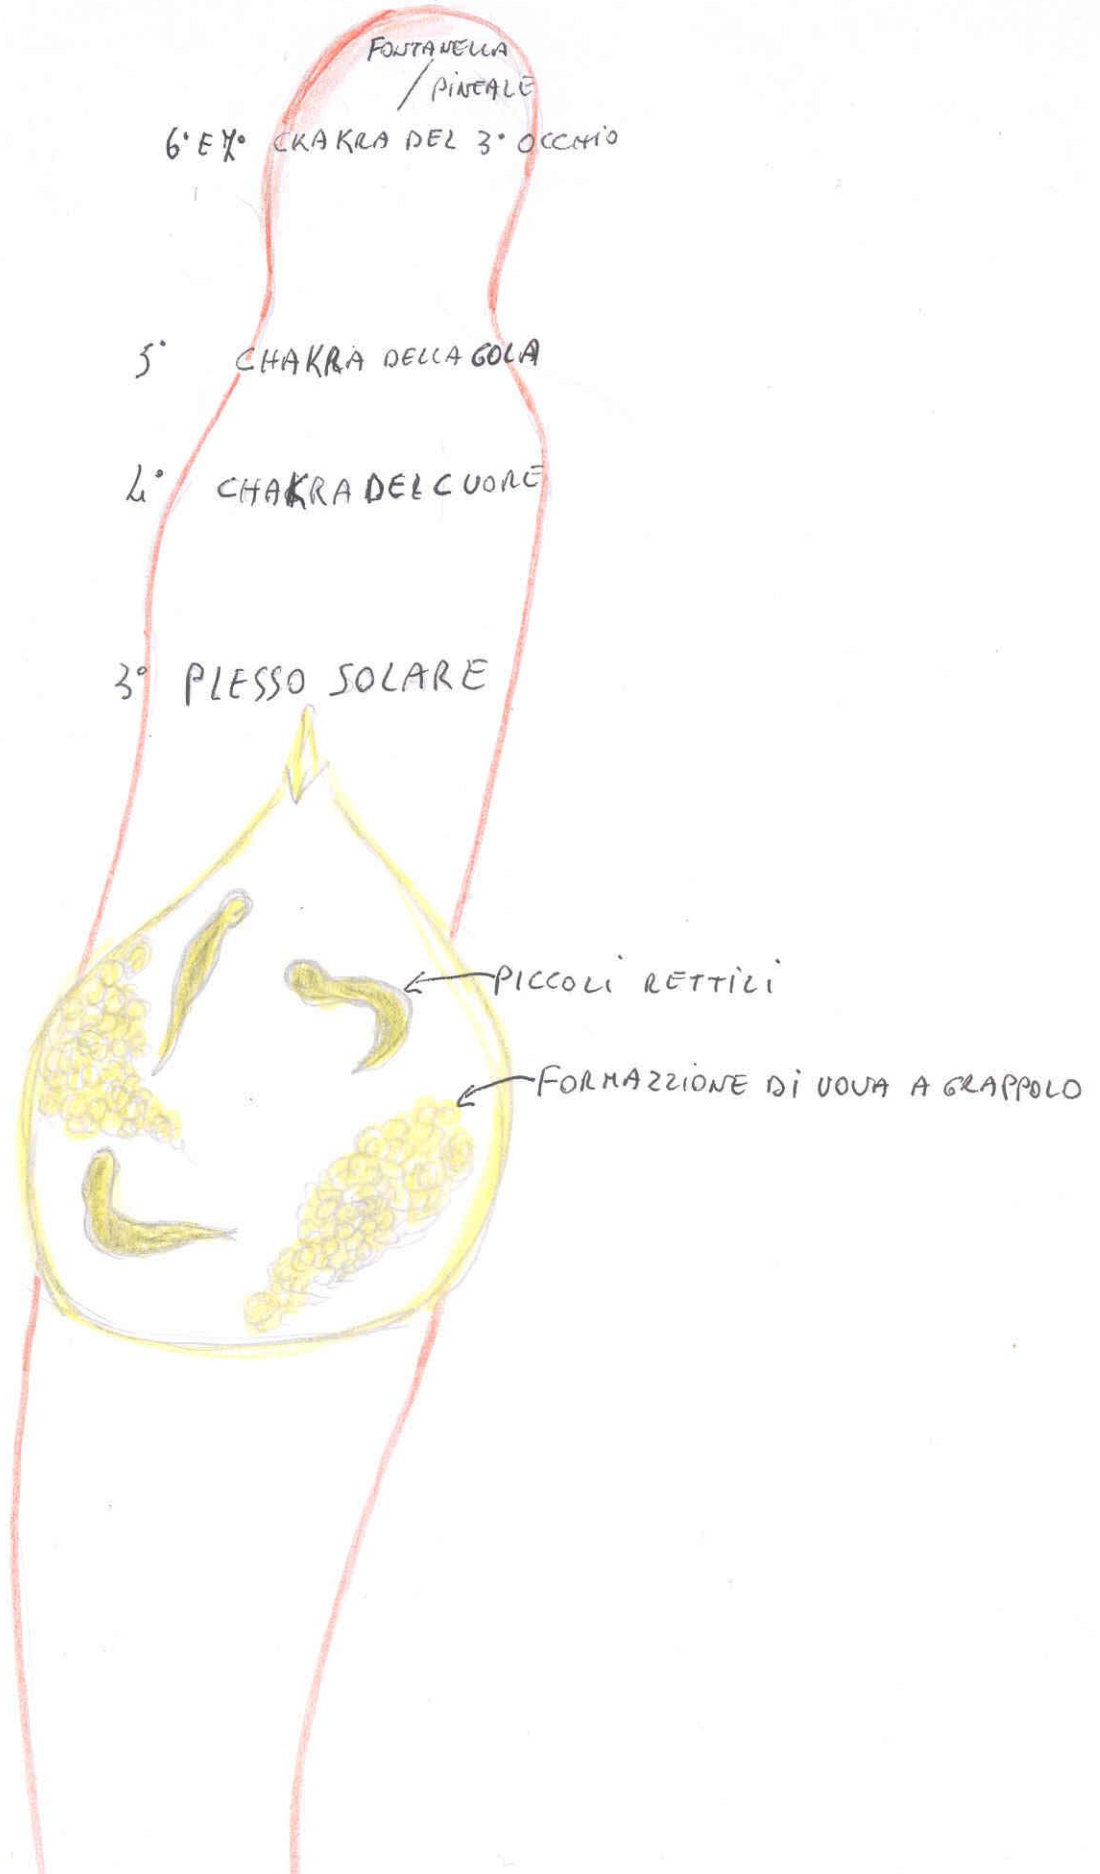 FONTANELLA
/ PINEALE
6° E 7° CKAKRA DEL 3° OCCHIO
5° CHAKRA DELLA GOLA
4° CHAKRA DEL CUORE
3° PLESSO SOLARE
PICCOLI RETTILI
FORMAZZIONE DI UOVA A GRAPPOLO